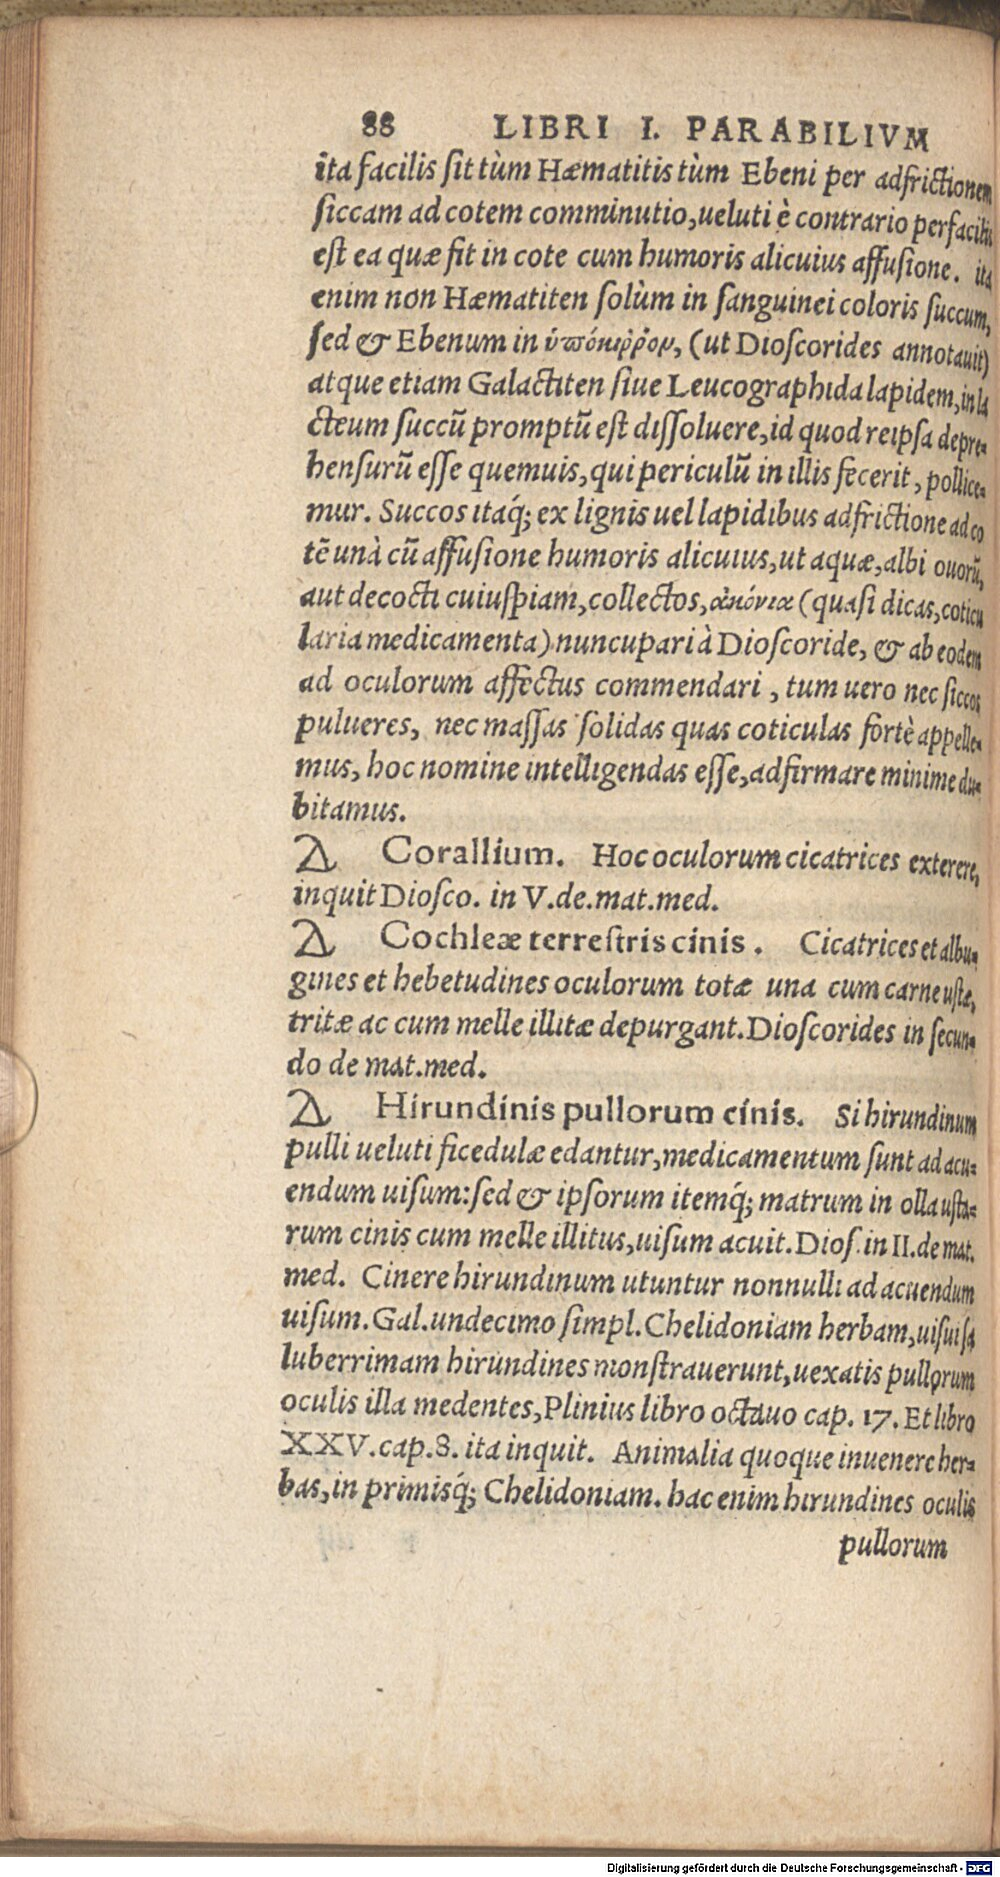 88 LIBRI I. PARABILIVM
ita facilis sit tùm Hæmatitis tùm Ebeni per adfrictionem
siccam ad cotem comminutio, ueluti è contrario perfacilis
est ea quæ fit in cote cum humoris alicuius affusione. ita
enim non Hæmatiten solùm in sanguinei coloris succum,
sed & Ebenum in ὑπόκιῤῥον, (ut Dioscorides annotauit)
atque etiam Galactiten siue Leucographida lapidem, in la
cteum succū promptū est dissoluere, id quod reipsa depre-
hensurū esse quemuis, qui periculū in illis fecerit, pollice-
mur. Succos itaq́; ex lignis uel lapidibus adfrictione ad co
tē unà cū affusione humoris alicuius, ut aquæ, albi ouorū,
aut decocti cuiuspiam, collectos, ἀκόνια (quasi dicas, coticu
laria medicamenta) nuncupari à Dioscoride, & ab eodem
ad oculorum affectus commendari, tum uero nec siccos
pulueres, nec massas solidas quas coticulas fortè appelle-
mus, hoc nomine intelligendas esse, adfirmare minime du-
bitamus.
Δ Corallium. Hoc oculorum cicatrices exterere,
inquit Diosco. in V. de. mat. med.
Δ Cochleæ terrestris cinis. Cicatrices et albu-
gines et hebetudines oculorum totæ una cum carne ustæ,
tritæ ac cum melle illitæ depurgant. Dioscorides in secun-
do de mat. med.
Δ Hirundinis pullorum cinis. Si hirundinum
pulli ueluti ficedulæ edantur, medicamentum sunt ad acu-
endum uisum: sed & ipsorum itemq́; matrum in olla usta-
rum cinis cum melle illitus, uisum acuit. Dios. in II. de mat.
med. Cinere hirundinum utuntur nonnulli ad acuendum
uisum. Gal. undecimo simpl. Chelidoniam herbam, uisui sa
luberrimam hirundines monstrauerunt, uexatis pullorum
oculis illa medentes, Plinius libro octauo cap. 17. Et libro
XXV. cap. 8. ita inquit. Animalia quoque inuenere her-
bas, in primisq́; Chelidoniam. hac enim hirundines oculis
pullorum
Digitalisierung gefördert durch die Deutsche Forschungsgemeinschaft - DFG